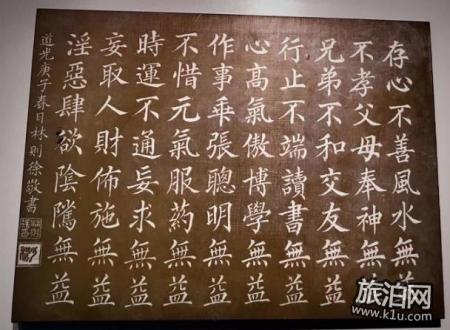 存心不善風水無益
不孝父母奉神無益
兄弟不和交友無益
行止不端讀書無益
心高氣傲博學無益
作事乖張聰明無益
不惜元氣服藥無益
時運不通妄求無益
妄取人財佈施無益
淫惡肆欲陰騭無益
道光庚子春日林則徐敬書
旅泊网
www.k1u.com